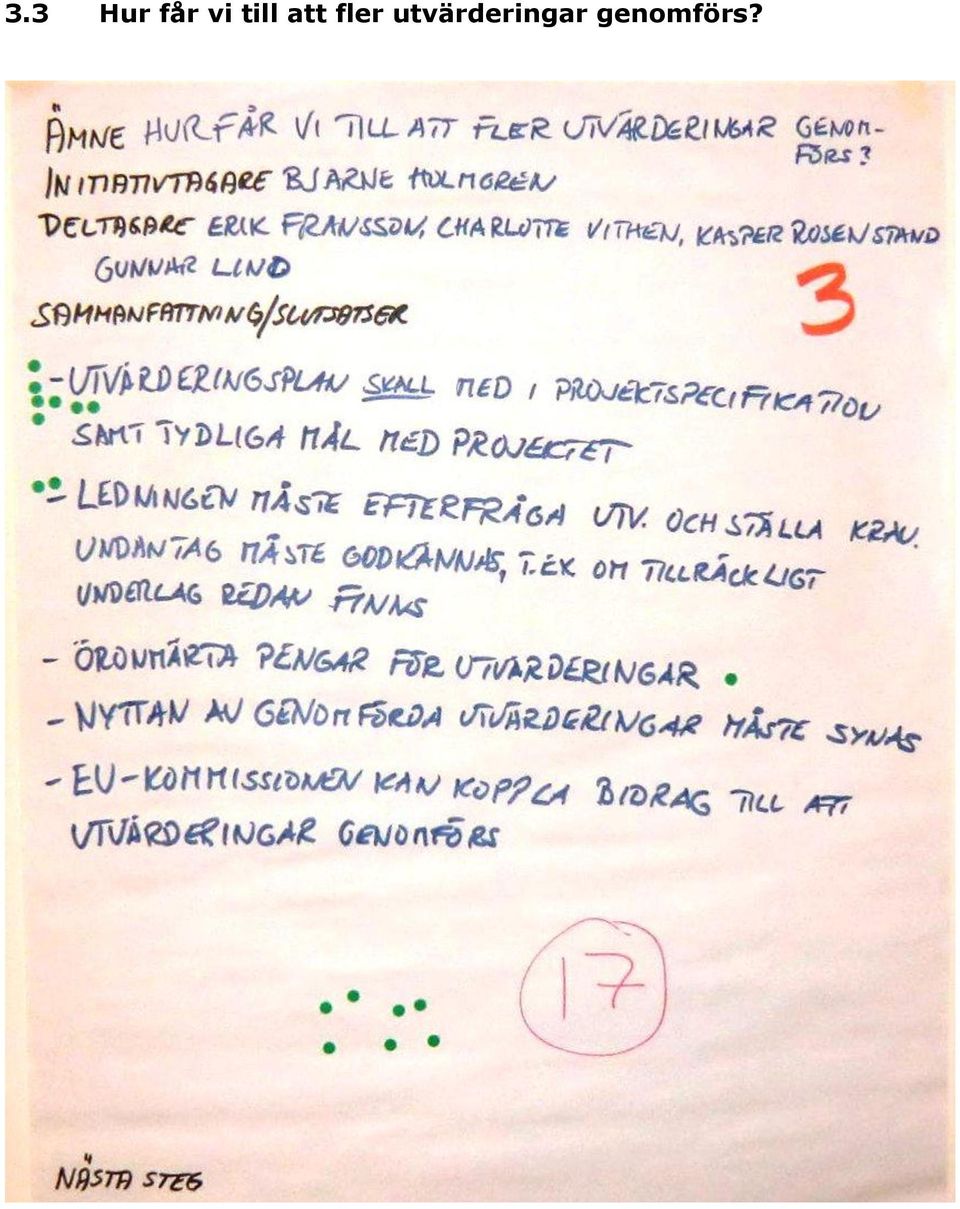 3.3 Hur får vi till att fler utvärderingar genomförs?
ÄMNE HUR FÅR VI TILL ATT FLER UTVÄRDERINGAR GENOM-
FÖRS?
INITIATIVTAGARE BJARNE HOLMGREN
DELTAGARE ERIK FRANSSON, CHARLOTTE VITHEN, KASPER ROSENSTAND
GUNNAR LIND
3
SAMMANFATTNING/SLUTSATSER
- UTVÄRDERINGSPLAN SKALL MED I PROJEKTSPECIFIKATION
SAMT TYDLIGA MÅL MED PROJEKTET
- LEDNINGEN MÅSTE EFTERFRÅGA UTV. OCH STÄLLA KRAV.
UNDANTAG MÅSTE GODKÄNNAS, T.EX OM TILLRÄCKLIGT
UNDERLAG REDAN FINNS
- ÖRONMÄRTA PENGAR FÖR UTVÄRDERINGAR
- NYTTAN AV GENOMFÖRDA UTVÄRDERINGAR MÅSTE SYNAS
- EU-KOMMISSIONEN KAN KOPPLA BIDRAG TILL ATT
UTVÄRDERINGAR GENOMFÖRS
17
NÄSTA STEG